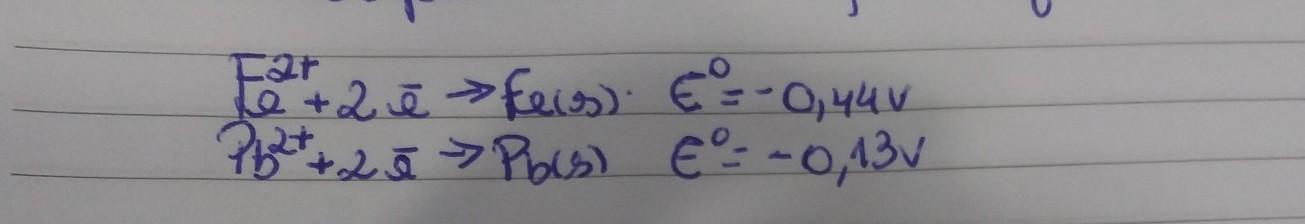 Fe²⁺ + 2 ē → Fe(s). E⁰ = -0,44V
Pb²⁺ + 2 ē → Pb(s) E⁰ = -0,13V